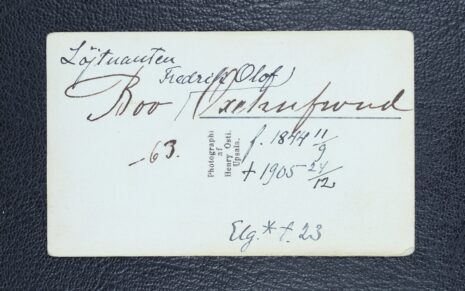 Löjtnanten
Fredrik Olof
Boo Oxehufvud
-63.
Photograph:
af
Henry Osti.
Upsala.
f. 1844 11/9
† 1905 24/12
Elg.* t. 23